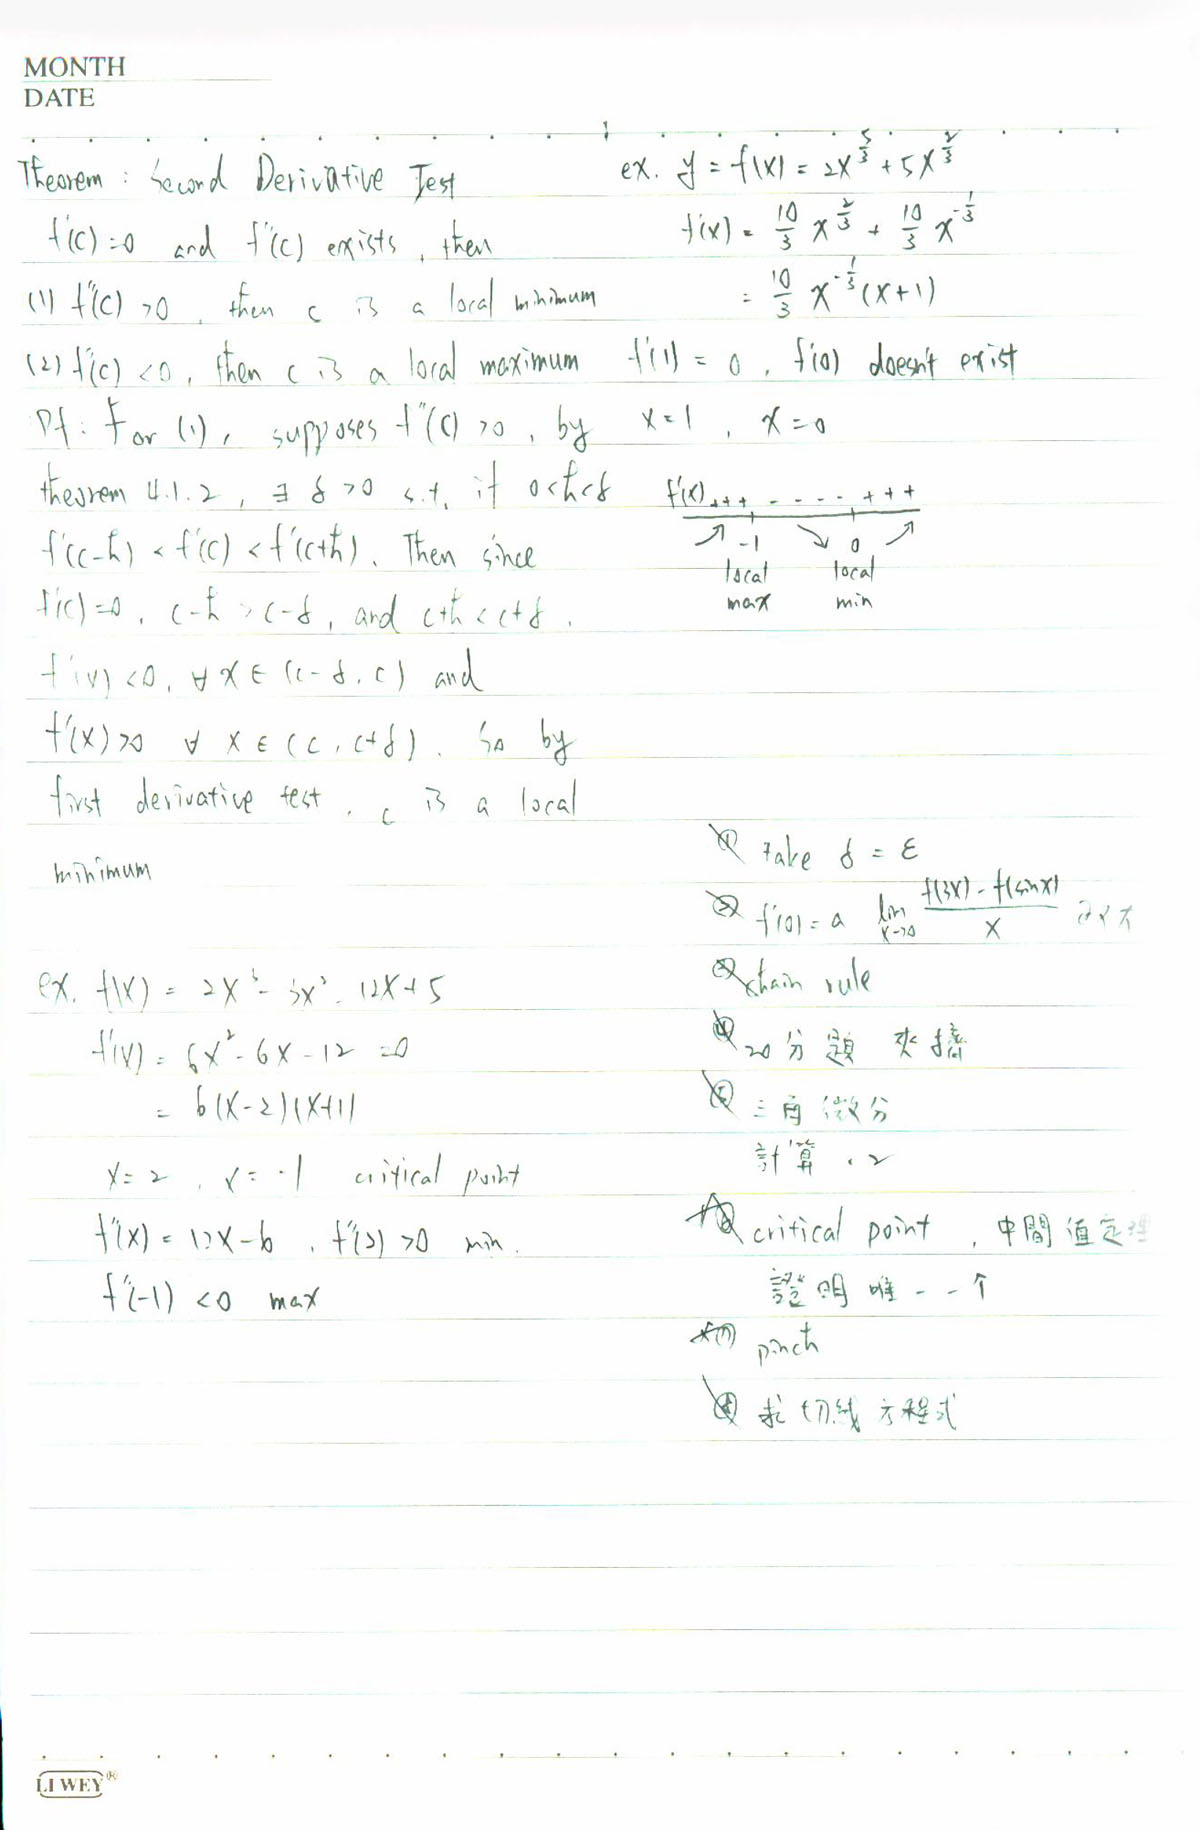 MONTH
DATE
Theorem : Second Derivative Test
f'(c)=0 and f''(c) exists, then
(1) f''(c) >0, then c is a local minimum
(2) f''(c) <0, then c is a local maximum
Pf: For (1), supposes f''(c) >0, by
theorem 4.1.2, ∃ δ >0 s.t. if 0<h<δ
f'(c-h) < f'(c) < f'(c+h). Then since
f'(c)=0, c-h > c-δ, and c+h < c+δ.
f'(x) <0, ∀ x ∈ (c-δ, c) and
f'(x) >0 ∀ x ∈ (c, c+δ). So by
first derivative test, c is a local
minimum
ex. f(x) = 2x³ - 3x² - 12x + 5
f'(x) = 6x² - 6x - 12 = 0
= 6(x-2)(x+1)
x = 2, x = -1 critical point
f''(x) = 12x - 6, f''(2) >0 min.
f''(-1) <0 max
ex. y = f(x) = 2x^{5/3} + 5x^{2/3}
f'(x) = 10/3 x^{2/3} + 10/3 x^{-1/3}
= 10/3 x^{-1/3} (x+1)
f'(1) = 0, f'(0) doesn't exist
x = 1, x = 0
f'(x) +++ - - - - +++
↗ -1 ↘ 0 ↗
local local
max min
① take δ = ε
② f'(0) = a lim x→0 (f(3x) - f(sinx))/x
③ chain rule
④ 20分題 夾擠
⑤ 三角微分
計算 .2
⑥ critical point, 中間值定理
證明唯一一个
⑦ pinch
⑧ 求切线方程式
LI WEY®